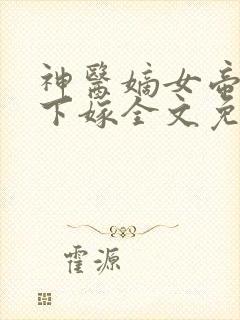 神醫嫡女帝
下嫁全文免
霍源